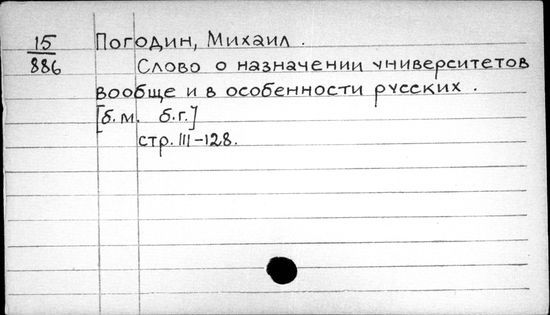 15 Погодин, Михаил.
886 Слово о назначении университетов
вообще и в особенности русских.
[б.м. б.г.]
стр. 111-128.